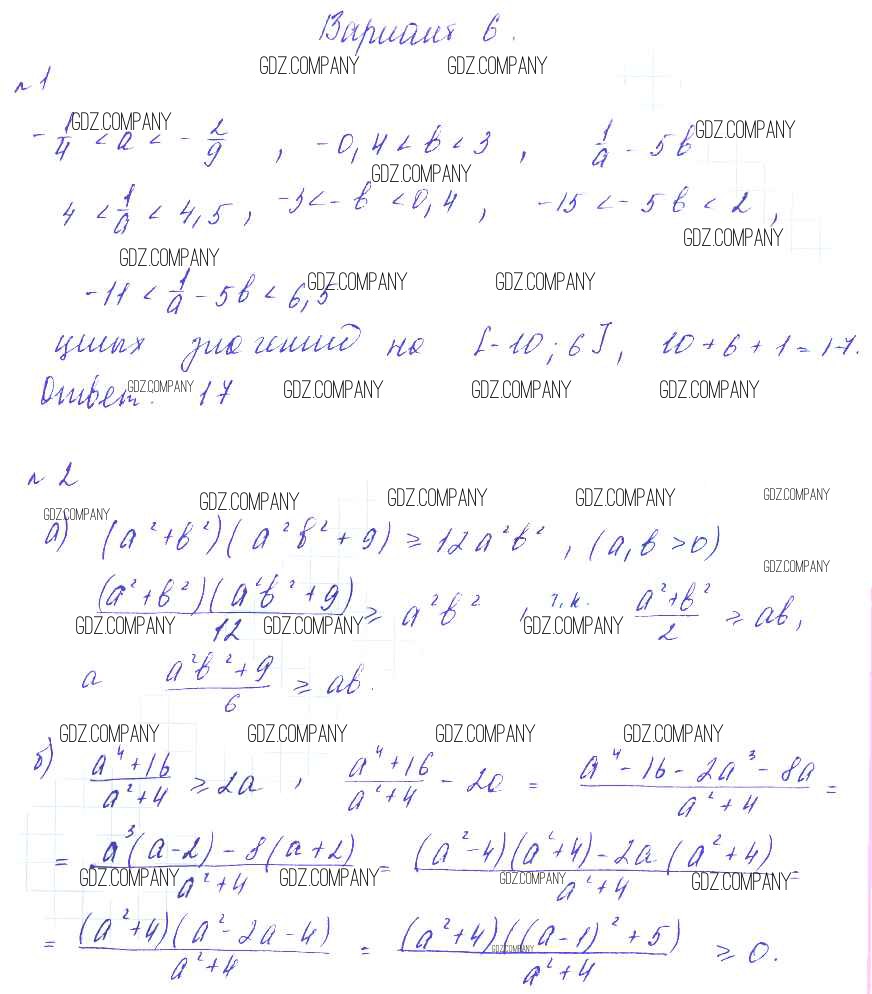 Вариант 6.
GDZ.COMPANY GDZ.COMPANY
№1
GDZ.COMPANY GDZ.COMPANY
-1/4 < a < -2/9 , -0,4 < b < 3 , 1/a - 5b
GDZ.COMPANY
4 < 1/a < 4,5 , -3 < -b < 0,4 , -15 < -5b < 2 ,
GDZ.COMPANY
GDZ.COMPANY
GDZ.COMPANY GDZ.COMPANY
-11 < 1/a - 5b < 6,5
целых значений на [-10; 6], 10+6+1=17.
Ответ: 17
GDZ.COMPANY GDZ.COMPANY GDZ.COMPANY GDZ.COMPANY
№2
GDZ.COMPANY GDZ.COMPANY GDZ.COMPANY GDZ.COMPANY
GDZ.COMPANY
а) (a²+b²)(a²b²+9) ≥ 12a²b² , (a,b >0)
GDZ.COMPANY
(a²+b²)(a²b²+9)/12 ≥ a²b² , т.к. (a²+b²)/2 ≥ ab,
GDZ.COMPANY GDZ.COMPANY GDZ.COMPANY
а (a²b²+9)/6 ≥ ab.
GDZ.COMPANY GDZ.COMPANY GDZ.COMPANY GDZ.COMPANY
б) (a⁴+16)/(a²+4) ≥ 2a , (a⁴+16)/(a²+4) - 2a = (a⁴-16-2a³-8a)/(a²+4) =
= (a³(a-2)-8(a+2))/(a²+4) = ((a²-4)(a²+4)-2a(a²+4))/(a²+4) =
GDZ.COMPANY GDZ.COMPANY GDZ.COMPANY GDZ.COMPANY
= ((a²+4)(a²-2a-4))/(a²+4) = ((a²+4)((a-1)²+5))/(a²+4) ≥ 0.
GDZ.COMPANY